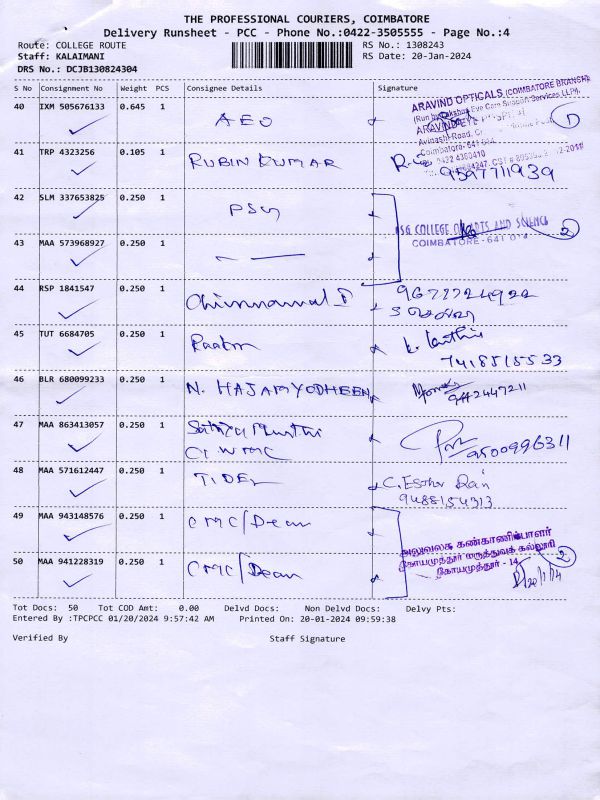 THE PROFESSIONAL COURIERS, COIMBATORE
Delivery Runsheet - PCC - Phone No.:0422-3505555 - Page No.:4
Route: COLLEGE ROUTE
RS No.: 1308243
Staff: KALAIMANI
RS Date: 20-Jan-2024
DRS No.: DCJB130824304
S No Consignment No Weight PCS Consignee Details Signature
40 IXM 505676133 0.645 1 AEO
ARAVIND OPTICALS (COIMBATORE BRANCH)
Avinashi Road,
0422 4360410
41 TRP 4323256 0.105 1 RUBIN KUMAR 9597711939
42 SLM 337653825 0.250 1 PSG
PSG COLLEGE OF ARTS AND SCIENCE 2
COIMBATORE - 641 014
43 MAA 573968927 0.250 1
44 RSP 1841547 0.250 1 Chinnamal P
45 TUT 6684705 0.250 1 7418515533
46 BLR 680099233 0.250 1 N. HAJAMYODHEEN 9442447211
47 MAA 863413057 0.250 1 Sathya Murthi 9500996311
48 MAA 571612447 0.250 1 TIDEL C. Esther Rani
9488154313
49 MAA 943148576 0.250 1 CMC/Dean
அலுவலக கண்காணிப்பாளர்
கோயமுத்தூர் மருத்துவக் கல்லூரி 2
கோயமுத்தூர் - 14
50 MAA 941228319 0.250 1 CMC/Dean 20/1/24
Tot Docs: 50 Tot COD Amt: 0.00 Delvd Docs: Non Delvd Docs: Delvy Pts:
Entered By :TPCPCC 01/20/2024 9:57:42 AM Printed On: 20-01-2024 09:59:38
Verified By Staff Signature